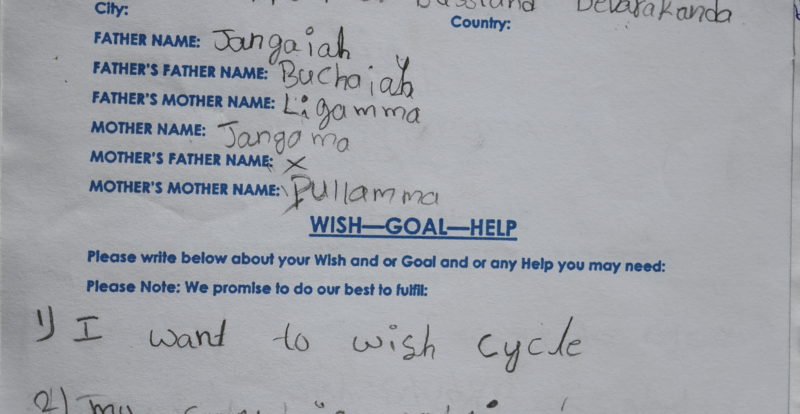 City: Devarakonda
Country:
FATHER NAME: Jangaiah
FATHER'S FATHER NAME: Buchaiah
FATHER'S MOTHER NAME: Ligamma
MOTHER NAME: Jangoma
MOTHER'S FATHER NAME: X
MOTHER'S MOTHER NAME: Pullamma
WISH—GOAL—HELP
Please write below about your Wish and or Goal and or any Help you may need:
Please Note: We promise to do our best to fulfil:
1) I want to wish cycle
2) My